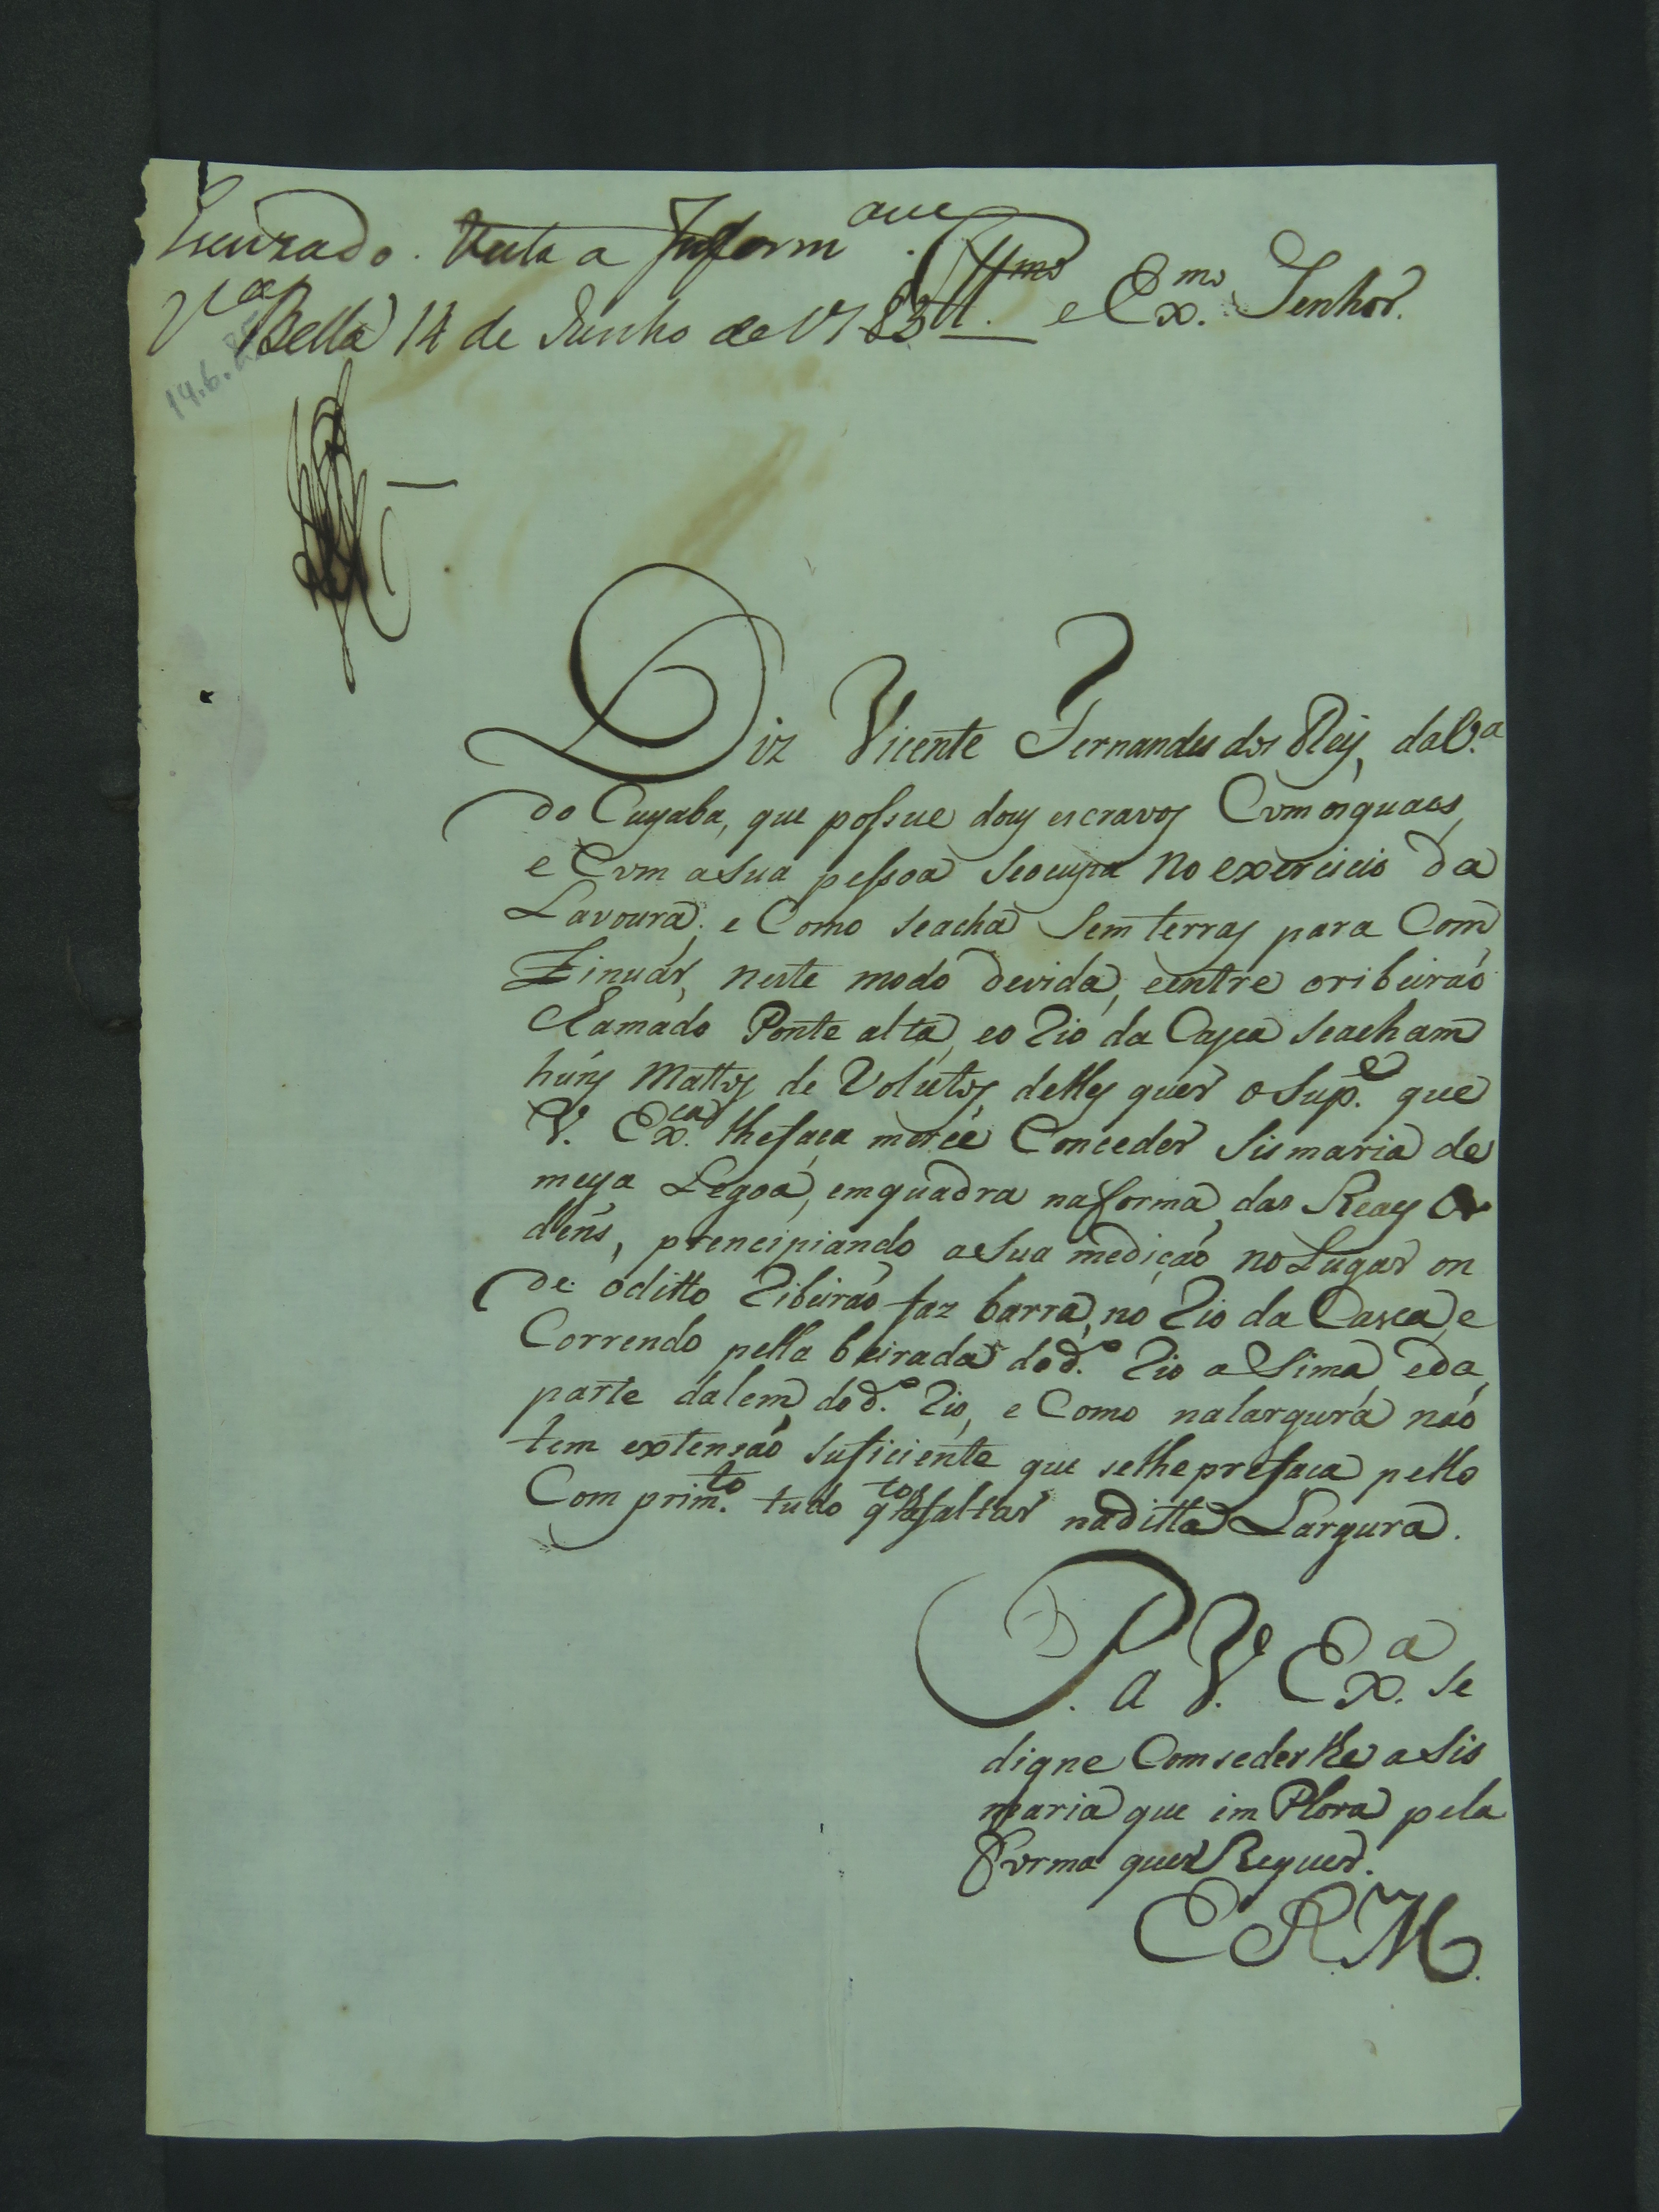 Escuzado. Vista a Inform ao
V.a Bella 14 de Junho de 1783
Ill.mo e Ex.mo Senhor.
14.6.
Diz Vicente Fernandes dos Reys, da V.a
do Cuyaba, que possue dous escravos Com os quaes,
e Com a sua pessoa se ocupa no exercicio da
Lavoura; e Como se acha sem terras para Com
tinuar, neste modo de vida, e entre o ribeirão
Clamado Ponte alta, e o Rio da Casca se acham
huns Mattos de Volutos, delles quer o Sup.e que
V. Ex.cia lhe faça mercé Conceder Sismaria de
meya Legoa, em quadra na forma, das Reays Or
dens, prencipiando a sua medição no Lugar on
de o ditto Ribeirão faz barra, no Rio da Casca, e
Correndo pella beirada do d.o Rio a Sima e da
parte dalem do d.o Rio, e Como na largura não
tem extensão suficiente que se lhe prefaca pello
Comprim.to tudo q.to lhe faltar na ditta Largura.
P. a V. Ex.a se
digne Comseder lhe a Sis
maria que im Plora pela
forma que Requer.
E R M.